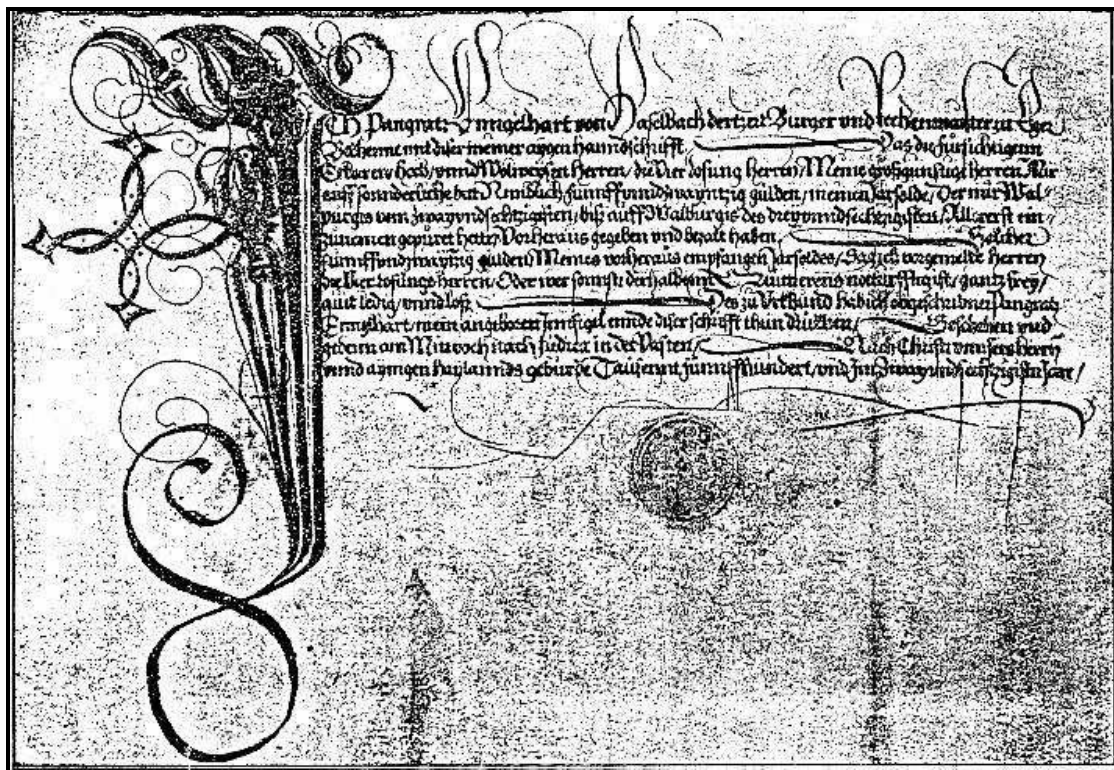 Ich Pangratz Enngelhart von Haselbach der tzeit Burger vnd Rechenmaister zu Eger
Bekenne mit diser meiner aygen hanndschrifft Das die fürsichtigenn
Erbarenn hoch vnnd Wolweysen Herren, die Vier losung herren, Meine großgunstige herren Mir
auff sonnderliche bett Nemblich fünffvnndzwayntzig gulden, meines Jarsolds, Der mir Wal-
purgis vom zwayvndsechtzigisten, biß auff Walburgis des dreyvnndsechtzigisten, Allererst ein-
zunemen gepüret hette, Vorheraus gegeben vnd bezalt haben, Solcher
fünffvnndzwayntzig gulden, Meines vorheraus empfangen Jarsoldes, Sag ich vorgemelte Herren
die Vier losunge herren, Oder wer sonnst derhalben Quittierens notturfftig ist, gantz frey,
quit ledig, vnnd loß Des zu Vrkhund hab ich obgeschribner Pangratz
Ennglhart, mein angeboren Innsigel ennde diser schrifft thun drücken, Geschehen vnd
geben am Mitwoch nach Judica in der Vasten, Nach Christi vnnsers herrn
vnnd aynigen haylannds gebürde Tausennt fünnffhundert, vnd Im zwayundsechtzigisten Jar,